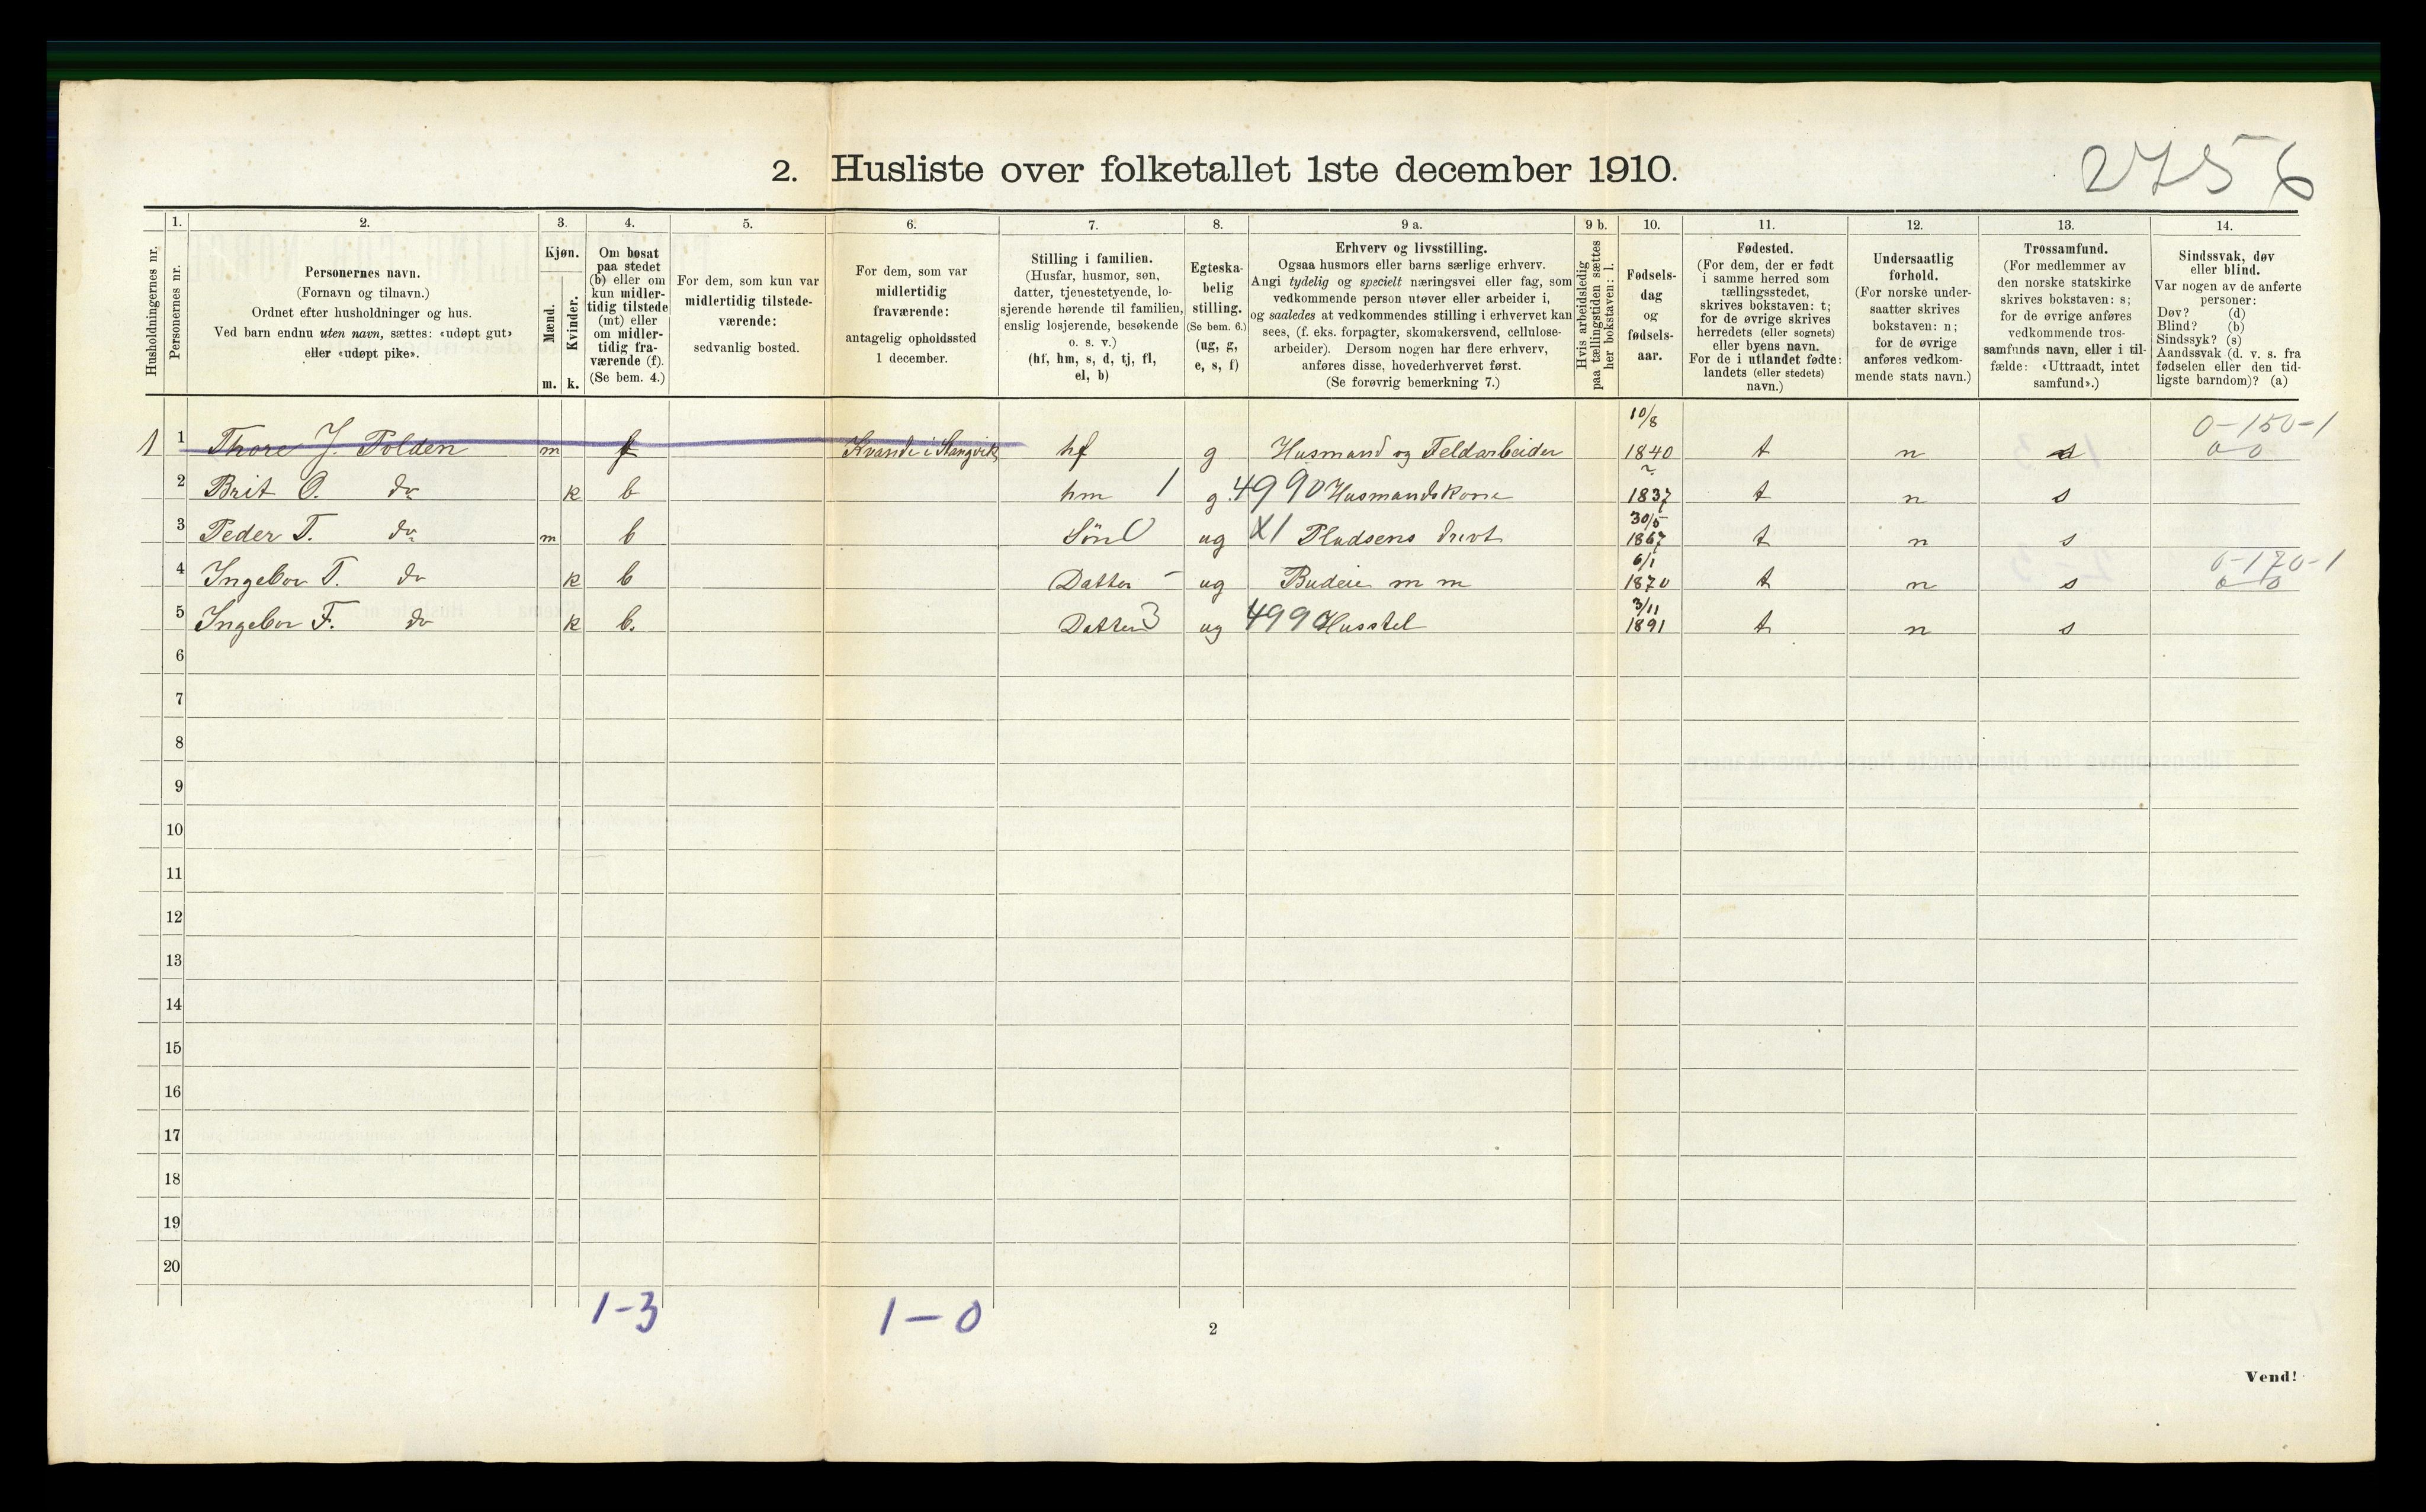 2756
2. Husliste over folketallet 1ste december 1910.
Husholdningernes nr.
1.
Personernes nr.
2.
Personernes navn.
(Fornavn og tilnavn.)
Ordnet efter husholdninger og hus.
Ved barn endnu uten navn, sættes: «udøpt gut»
eller «udøpt pike».
3.
Kjøn.
Mænd.
Kvinder.
m. k.
4.
Om bosat
paa stedet
(b) eller om
kun midler-
tidig tilstede
(mt) eller
om midler-
tidig fra-
værende (f).
(Se bem. 4.)
5.
For dem, som kun var
midlertidig tilstede-
værende:
sedvanlig bosted.
6.
For dem, som var
midlertidig
fraværende:
antagelig opholdssted
1 december.
7.
Stilling i familien.
(Husfar, husmor, søn,
datter, tjenestetyende, lo-
sjerende hørende til familien,
enslig losjerende, besøkende
o. s. v.)
(hf, hm, s, d, tj, fl,
el, b)
8.
Egteska-
belig
stilling.
(Se bem. 6.)
(ug, g,
e, s, f)
9 a.
Erhverv og livsstilling.
Ogsaa husmors eller barns særlige erhverv.
Angi tydelig og specielt næringsvei eller fag, som
vedkommende person utøver eller arbeider i,
og saaledes at vedkommendes stilling i erhvervet kan
sees, (f. eks. forpagter, skomakersvend, cellulose-
arbeider). Dersom nogen har flere erhverv,
anføres disse, hovederhvervet først.
(Se forøvrig bemerkning 7.)
9 b.
Hvis arbeidsledig
paa tællingstiden sættes
her bokstaven: l.
10.
Fødsels-
dag
og
fødsels-
aar.
11.
Fødested.
(For dem, der er født
i samme herred som
tællingsstedet,
skrives bokstaven: t;
for de øvrige skrives
herredets (eller sognets)
eller byens navn.
For de i utlandet fødte:
landets (eller stedets)
navn.)
12.
Undersaatlig
forhold.
(For norske under-
saatter skrives
bokstaven: n;
for de øvrige
anføres vedkom-
mende stats navn.)
13.
Trossamfund.
(For medlemmer av
den norske statskirke
skrives bokstaven: s;
for de øvrige anføres
vedkommende tros-
samfunds navn, eller i til-
fælde: «Uttraadt, intet
samfund».)
14.
Sindssvak, døv
eller blind.
Var nogen av de anførte
personer:
Døv? (d)
Blind? (b)
Sindssyk? (s)
Aandssvak (d. v. s. fra
fødselen eller den tid-
ligste barndom)? (a)
1 1 Thore J. Polden m f Kvande i Stangvik hf g Husmand og Feldarbeider 10/8 1840 t n s 0-150-1
0-0
2 Brit O. do k b hm 1 g 4990 Husmandskone 1837 t n s
3 Peder T. do m b Søn 0 ug X1 Pladsens drivt 30/5 1867 t n s
4 Ingebor T. do k b Datter - ug Budeie m m 6/1 1870 t n s 0-170-1
0-0
5 Ingebor F. do k b. Datter 3 ug 4990 Husstel 3/11 1891 t n s
6
7
8
9
10
11
12
13
14
15
16
17
18
19
20
1-3 1-0
2
Vend!